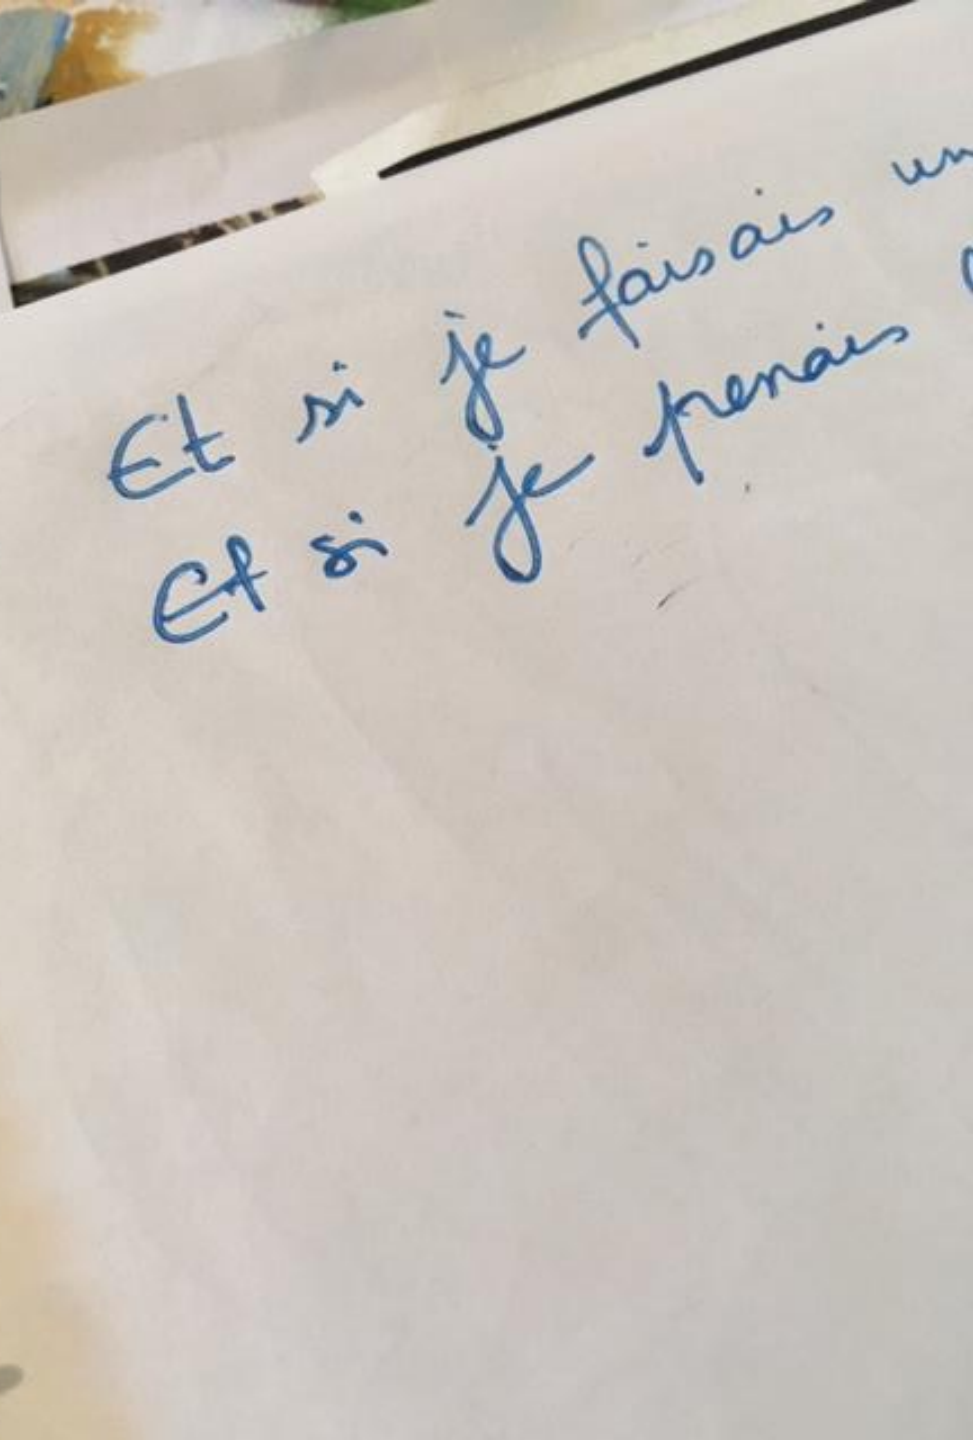 Et si je faisais un
Et si je prenais